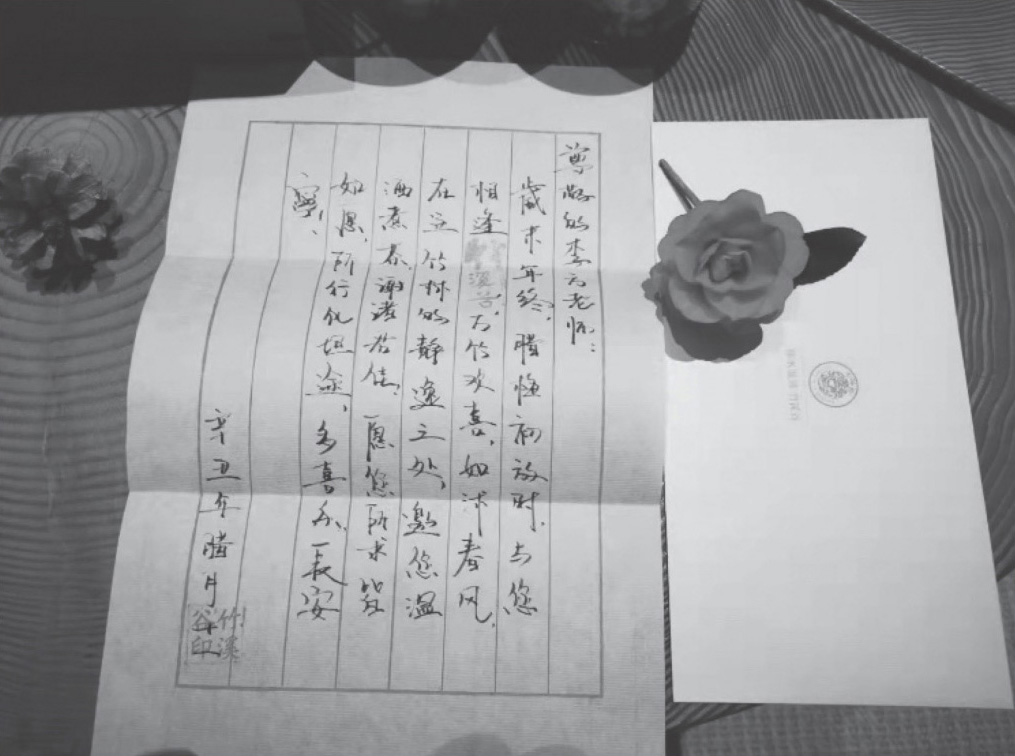 尊敬的李老师：
歲末年终，腊梅初放时，与您
相逢溪谷，万竹欢喜，如沐春风，
在竹林的静逸之处，邀您温
酒煮茶，愿您所求皆
如愿，所行化坦途，多喜乐，长安
寧！
辛丑年腊月
竹溪谷印